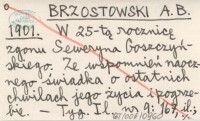 BRZOSTOWSKI A.B.
1901. W 25-tą rocznicę
zgonu Seweryna Goszczyń-
skiego. Ze wspomnień nacz-
nego świadka o ostatnich
chwilach jego życia i pogrze-
bie. — Tyg. Il. nr 9: 167, il.;